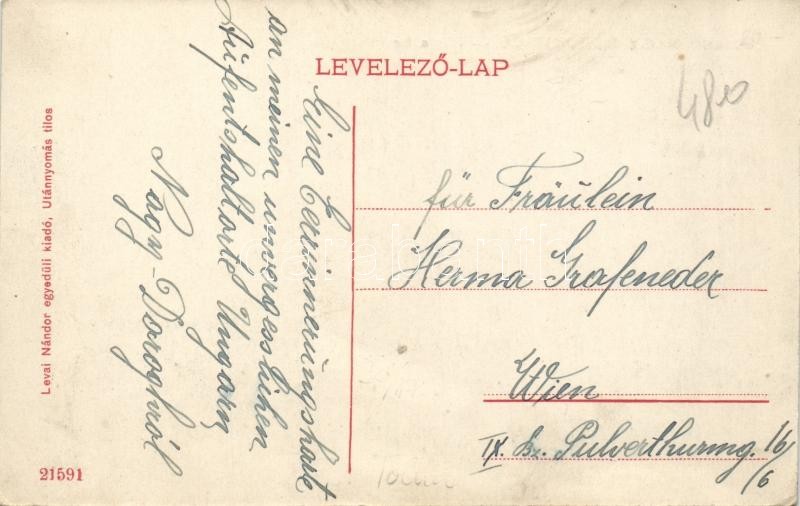 LEVELEZŐ-LAP
480
Eine Errinnerungskarte
an meinen unvergesslichen
Aufentshaltorte Ungarn
Nagy-Daroghról
für Fräulein
Herma Grafeneder
Wien
IX. Bz. Pulverthurmg. 16/6
Levai Nándor egyedüli kiadó, Utánnyomás tilos
21591